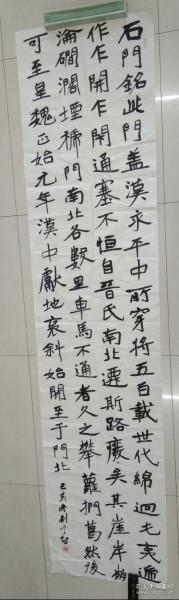 石門銘此門蓋漢永平中所穿將五百載世代綿迴屯夷遞
作乍開乍閉通塞不恒自晉氏南北遷斯路廢矣其崖岸崩
淪磵閣堙褫門南北各數里車馬不通者久之攀蘿捫葛然後
可至皇魏正始元年漢中獻地褒斜始開至于門北